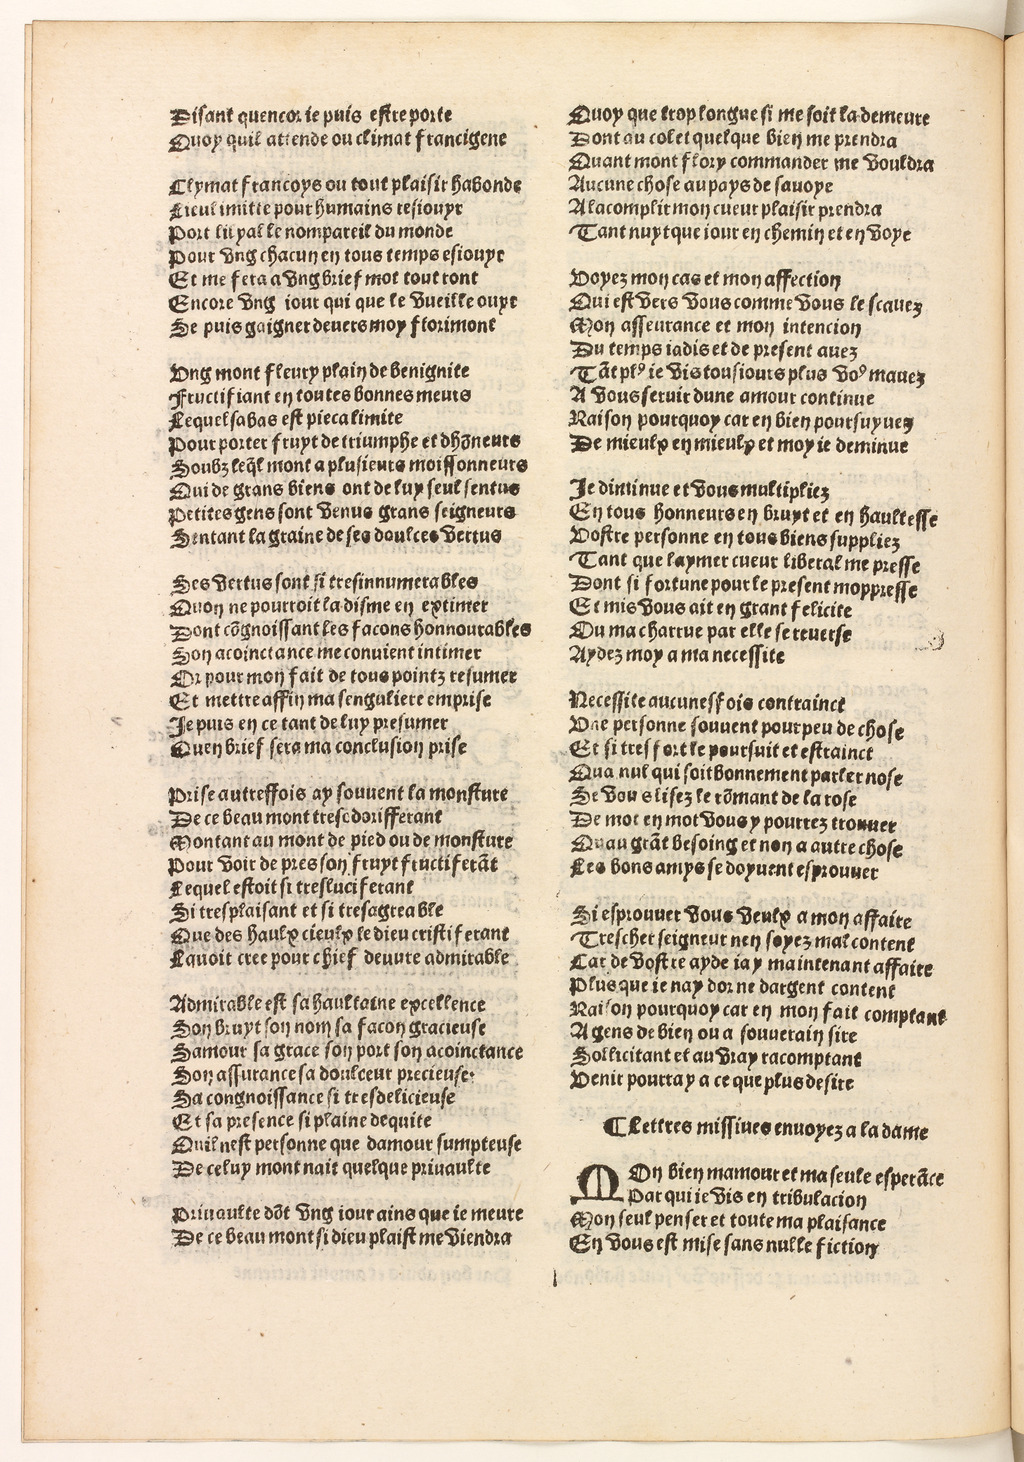 Disant quencor ie puis estre porte
Quoy quil attende ou climat francigene
Clymat francoys ou tout plaisir habonde
Lieu limitte pour humains resiouyr
Port liyal le nompareil du monde
Pour vng chacun en tous temps esiouyr
Et me fera a vng brief mot tout ront
Encore vng iour qui que le vueille ouyr
Se puis gaigner deuers moy florimont
Vng mont fleury plain de benignite
Fructifiant en toutes bonnes meurs
Lequel sabas est pieca limite
Pour porter fruyt de triumphe et dhõneurs
Soubz leq̃l mont a plusieurs moissonneurs
Qui de grans biens ont de luy seul sentus
Petites gens sont venus grans seigneurs
Sentant la graine de ses doulces vertus
Ses vertus sont si tresinnumerables
Quon ne pourroit la disme en extimer
Dont cõgnoissant les facons honnourables
Son acoinctance me conuient intimer
Or pour mon fait de tous pointz resumer
Et mettre affin ma senguliere emprise
Je puis en ce tant de luy presumer
Quen brief sera ma conclusion prise
Prise autreffois ay souuent la monsture
De ce beau mont tresodorifferant
Montant au mont de pied ou de monsture
Pour voir de pres son fruyt fructiferãt
Lequel estoit si tresluciferant
Si tresplaisant et si tresagreable
Que des haulx cieulx le dieu cristiferant
Lauoit cree pour chief deuure admirable
Admirable est sa haultaine excellence
Son bruyt son nom sa facon gracieuse
Samour sa grace son port son acoinctance
Son assurance sa doulceur precieuse
Sa congnoissance si tresdelicieuse
Et sa presence si plaine dequite
Quil nest personne que damour sumpteuse
De celuy mont nait quelque priuaulte
Priuaulte dõt vng iour ains que ie meure
De ce beau mont si dieu plaist me viendra
Quoy que trop longue si me soit la demeure
Dont au colet quelque bien me prendra
Quant mont flory commander me vouldra
Aucune chose au pays de sauoye
A lacomplir mon cueur plaisir prendra
Tant nuyt que iour en chemin et en voye
Voyez mon cas et mon affection
Qui est vers vous comme vous le scauez
Mon asseurance et mon intencion
Du temps iadis et de present auez
Tãt plꝰ ie vis tousiours plus voꝰ mauez
A vous seruir dune amour continue
Raison pourquoy car en bien poursuyuez
De mieulx en mieulx et moy ie deminue
Je diminue et vous multipliez
En tous honneurs en bruyt et en haultesse
Vostre personne en tous biens suppliez
Tant que laymer cueur liberal me presse
Dont si fortune pour le present moppresse
Et mis vous ait en grant felicite
Ou ma charrue par elle se reuerse
Aydez moy a ma necessite
Necessite aucunesfois contrainct
Vne personne souuent pour peu de chose
Et si tresfort le poursuit et estrainct
Qua nul qui soit bonnement parler nose
Se vous lisez le rõmant de la rose
De mot en mot vous y pourrez trouuer
Quau grãt besoing et non a autre chose
Les bons amys se doyuent esprouuer
Si esprouuer vous veulx a mon affaire
Trescher seigneur nen soyez mal content
Car de vostre ayde iay maintenant affaire
Plus que ie nay dor ne dargent content
Raison pourquoy car en mon fait comptant
A gens de bien ou a souuerain sire
Sollicitant et au vray racomptant
Venir pourray a ce que plus desire
⸿Lettres missiues enuoyez a la dame
MOn bien mamour et ma seule esperãce
Par qui ie vis en tribulacion
Mon seul penser et toute ma plaisance
En vous est mise sans nulle fiction